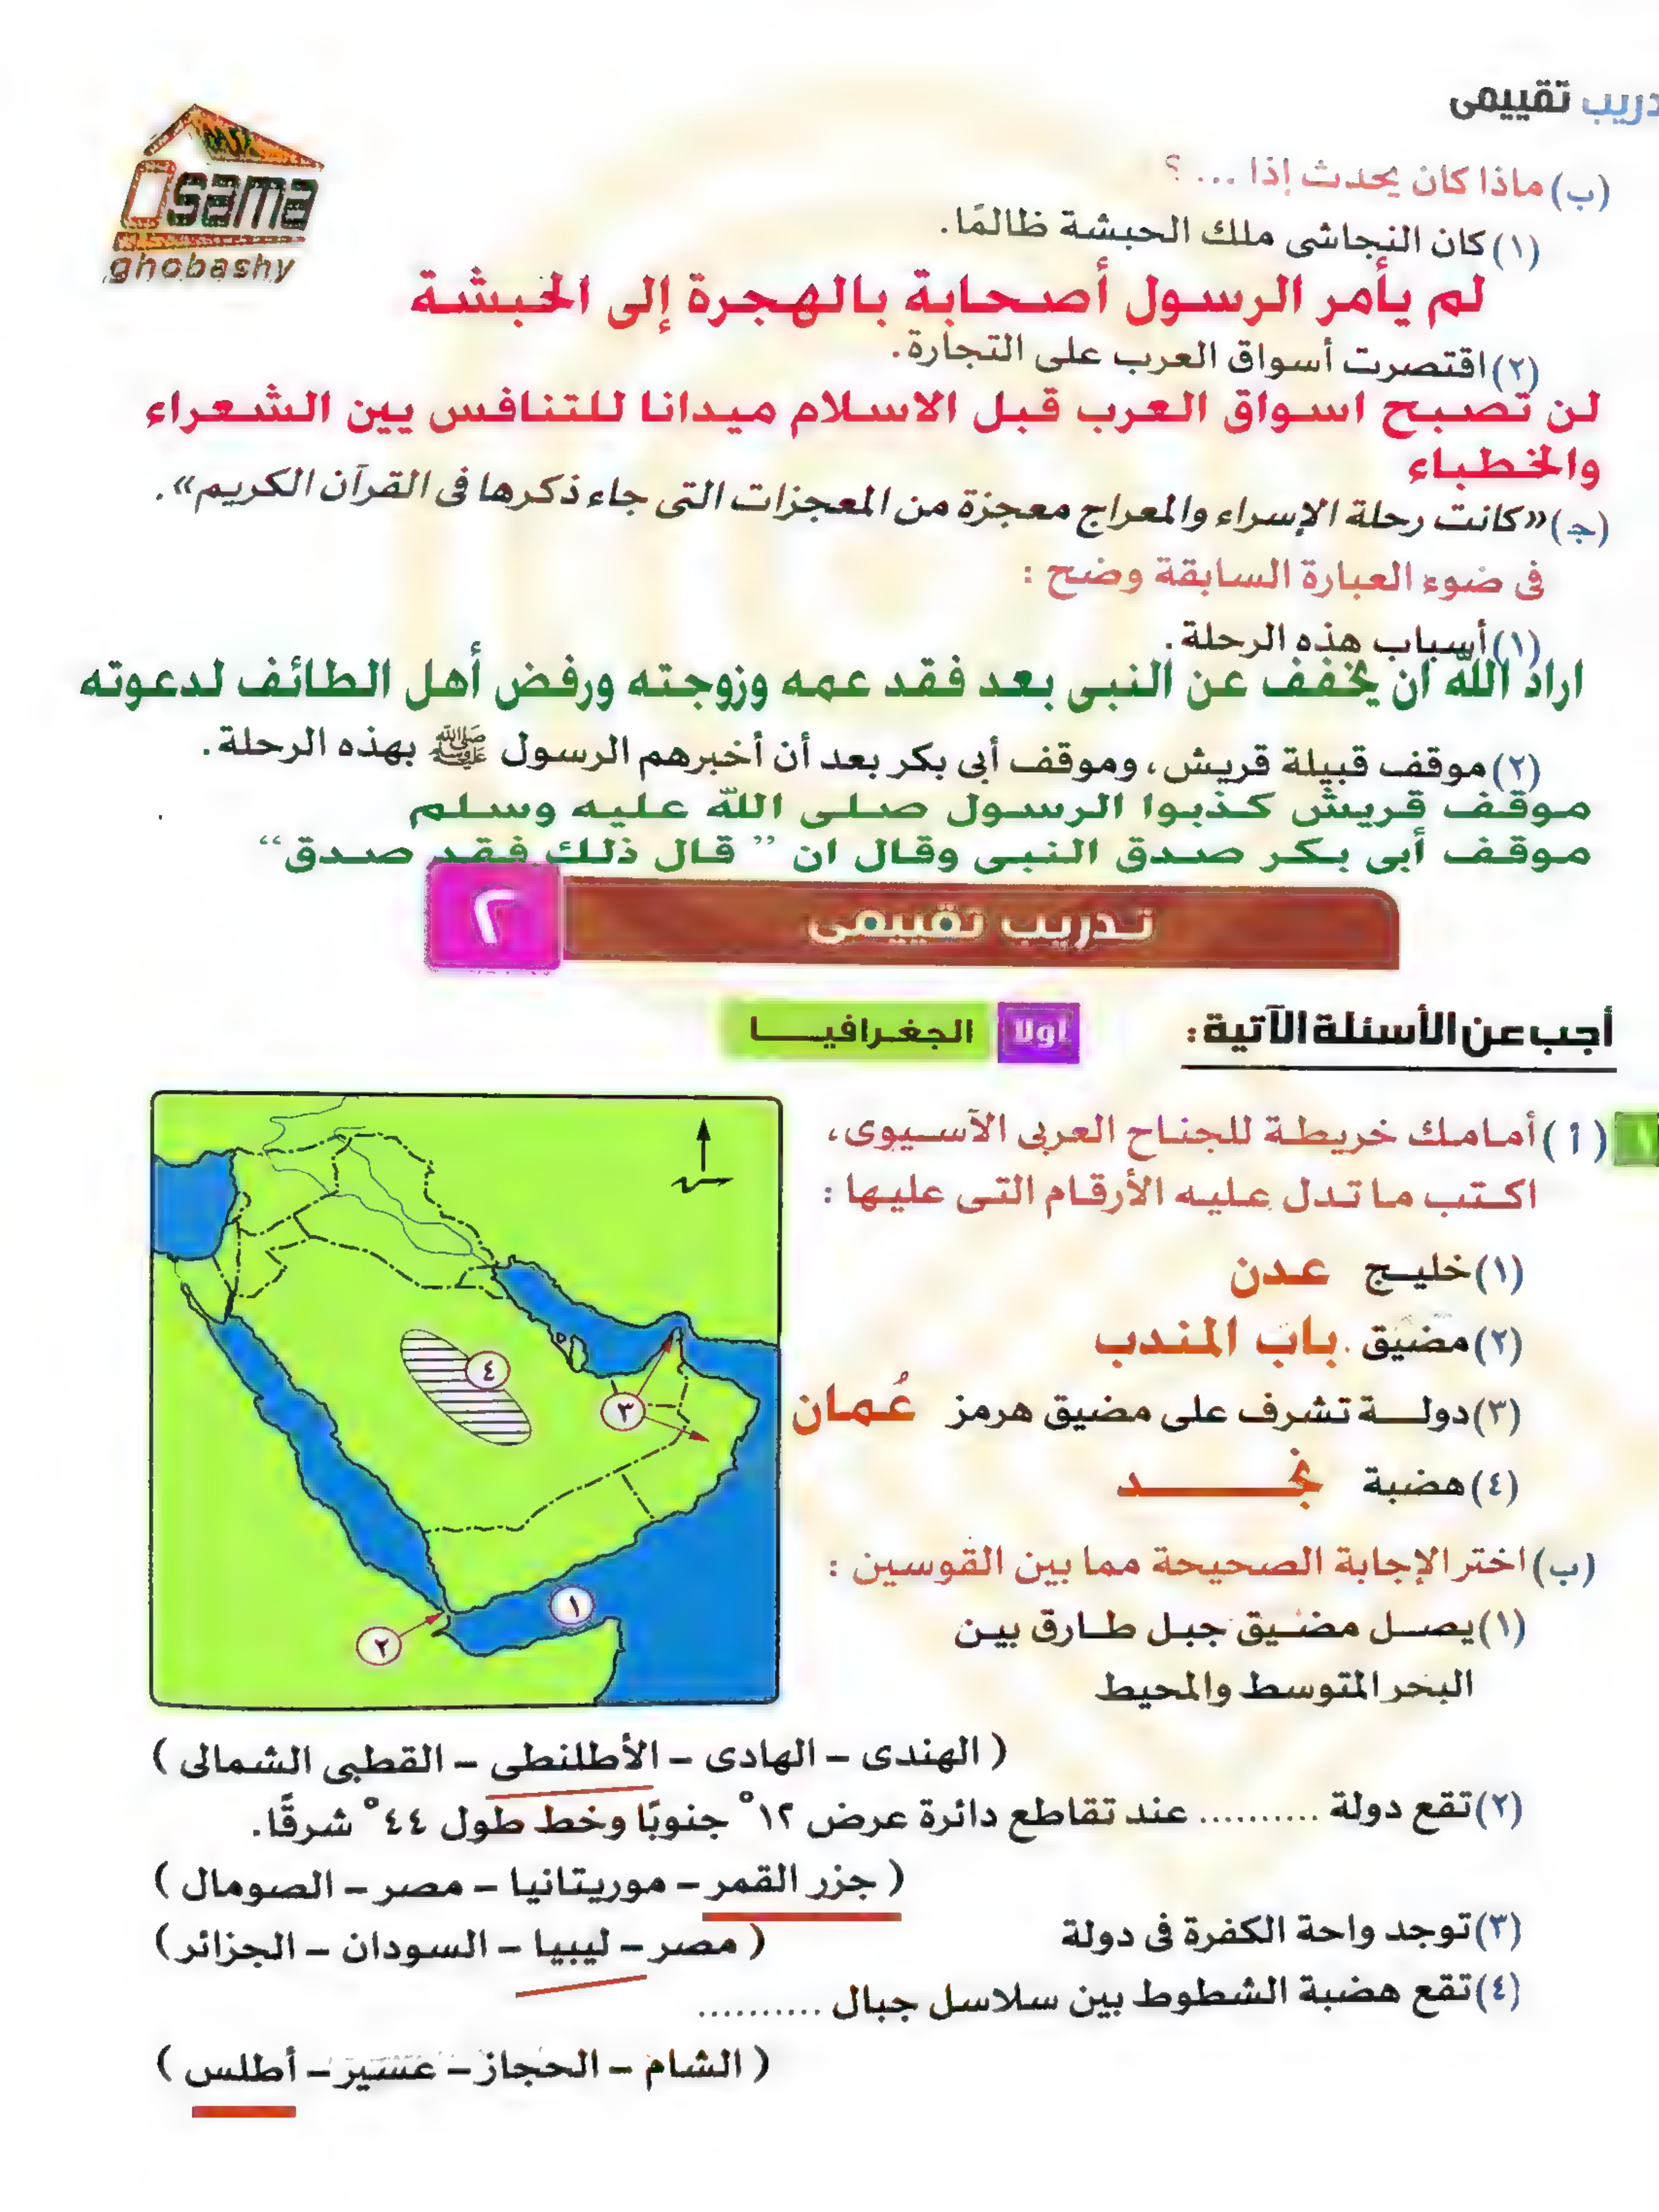 تدريب تقييمى
Osama
ghobashy
(ب) ماذا كان يحدث إذا ... ؟
(١) كان النجاشى ملك الحبشة ظالمًا.
لم يأمر الرسول أصحابة بالهجرة إلى الحبشة
(٢) اقتصرت أسواق العرب على التجارة.
لن تصبح اسواق العرب قبل الاسلام ميدانا للتنافس يين الشعراء
والخطباء
(جـ) «كانت رحلة الإسراء والمعراج معجزة من المعجزات التى جاء ذكرها فى القرآن الكريم».
فى ضوء العبارة السابقة وضح :
(١) أسباب هذه الرحلة.
اراد الله ان يخفف عن النبى بعد فقد عمه وزوجته ورفض أهل الطائف لدعوته
(٢) موقف قبيلة قريش، وموقف أبى بكر بعد أن أخبرهم الرسول ﷺ بهذه الرحلة.
موقف قريش كذبوا الرسول صلى الله عليه وسلم
موقف أبى بكر صدق النبى وقال ان ” قال ذلك فقد صدق“
تدريب تقييمى ٢
أجب عن الأسئلة الآتية :
أولا الجغرافيا
١ (أ) أمامك خريطة للجناح العربى الآسيوى،
اكتب ما تدل عليه الأرقام التى عليها :
(١) خليج عدن
(٢) مضيق باب المندب
(٣) دولة تشرف على مضيق هرمز عُمان
(٤) هضبة نجد
٤
٣
١
٢
(ب) اختر الإجابة الصحيحة مما بين القوسين :
(١) يصل مضيق جبل طارق بين
البحر المتوسط والمحيط
( الهندى – الهادى – الأطلنطى – القطبى الشمالى )
(٢) تقع دولة .......... عند تقاطع دائرة عرض ١٢° جنوبًا وخط طول ٤٤° شرقًا.
( جزر القمر – موريتانيا – مصر – الصومال )
(٣) توجد واحة الكفرة فى دولة
( مصر – ليبيا – السودان – الجزائر )
(٤) تقع هضبة الشطوط بين سلاسل جبال ..........
( الشام – الحجاز – عسير – أطلس )